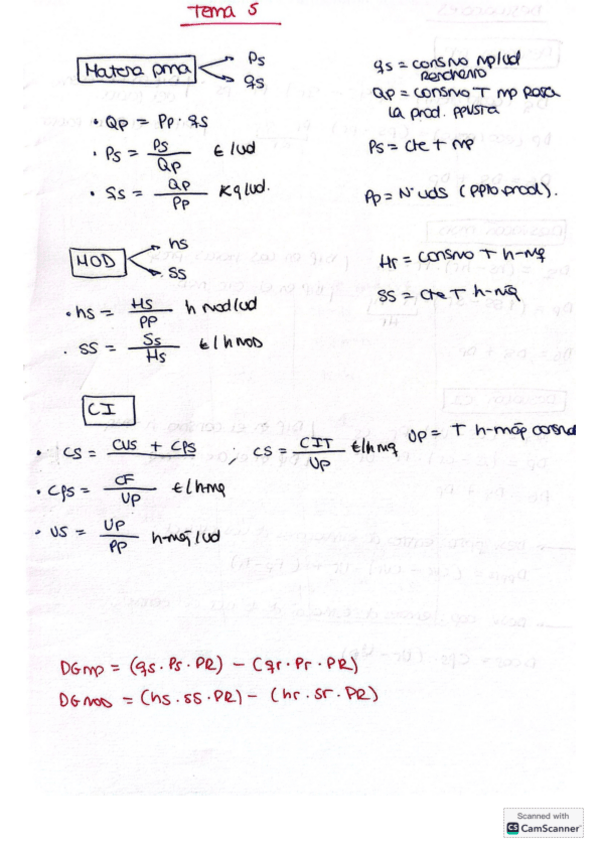 Tema 5
Materia pma
Ps
qs
qs = consmo mp/ud
Qp = consmo T mp para
la prod. ppusta
• Qp = Pp · qs
• Ps = Ps / Qp €/ud
Ps = cte T mp
• qs = Qp / Pp Kg/ud.
Pp = Nº uds (ppto prod).
MOD
hs
ss
Hr = consmo T h-mq
ss = cte T h-mq
• hs = Hs / PP h mod/ud
. ss = Ss / Hs €/hMOD
CI
• cs = cvs + cps ; cs = CIT / UP €/hmq
UP = T h-maq
• cps = CF / UP €/h-mq
• us = UP / PP h-mq/ud
DGmp = (qs · Ps · PR) – (qr · Pr · PR)
DGMOD = (hs · ss · PR) – (hr · sr · PR)
Scanned with
CS CamScanner